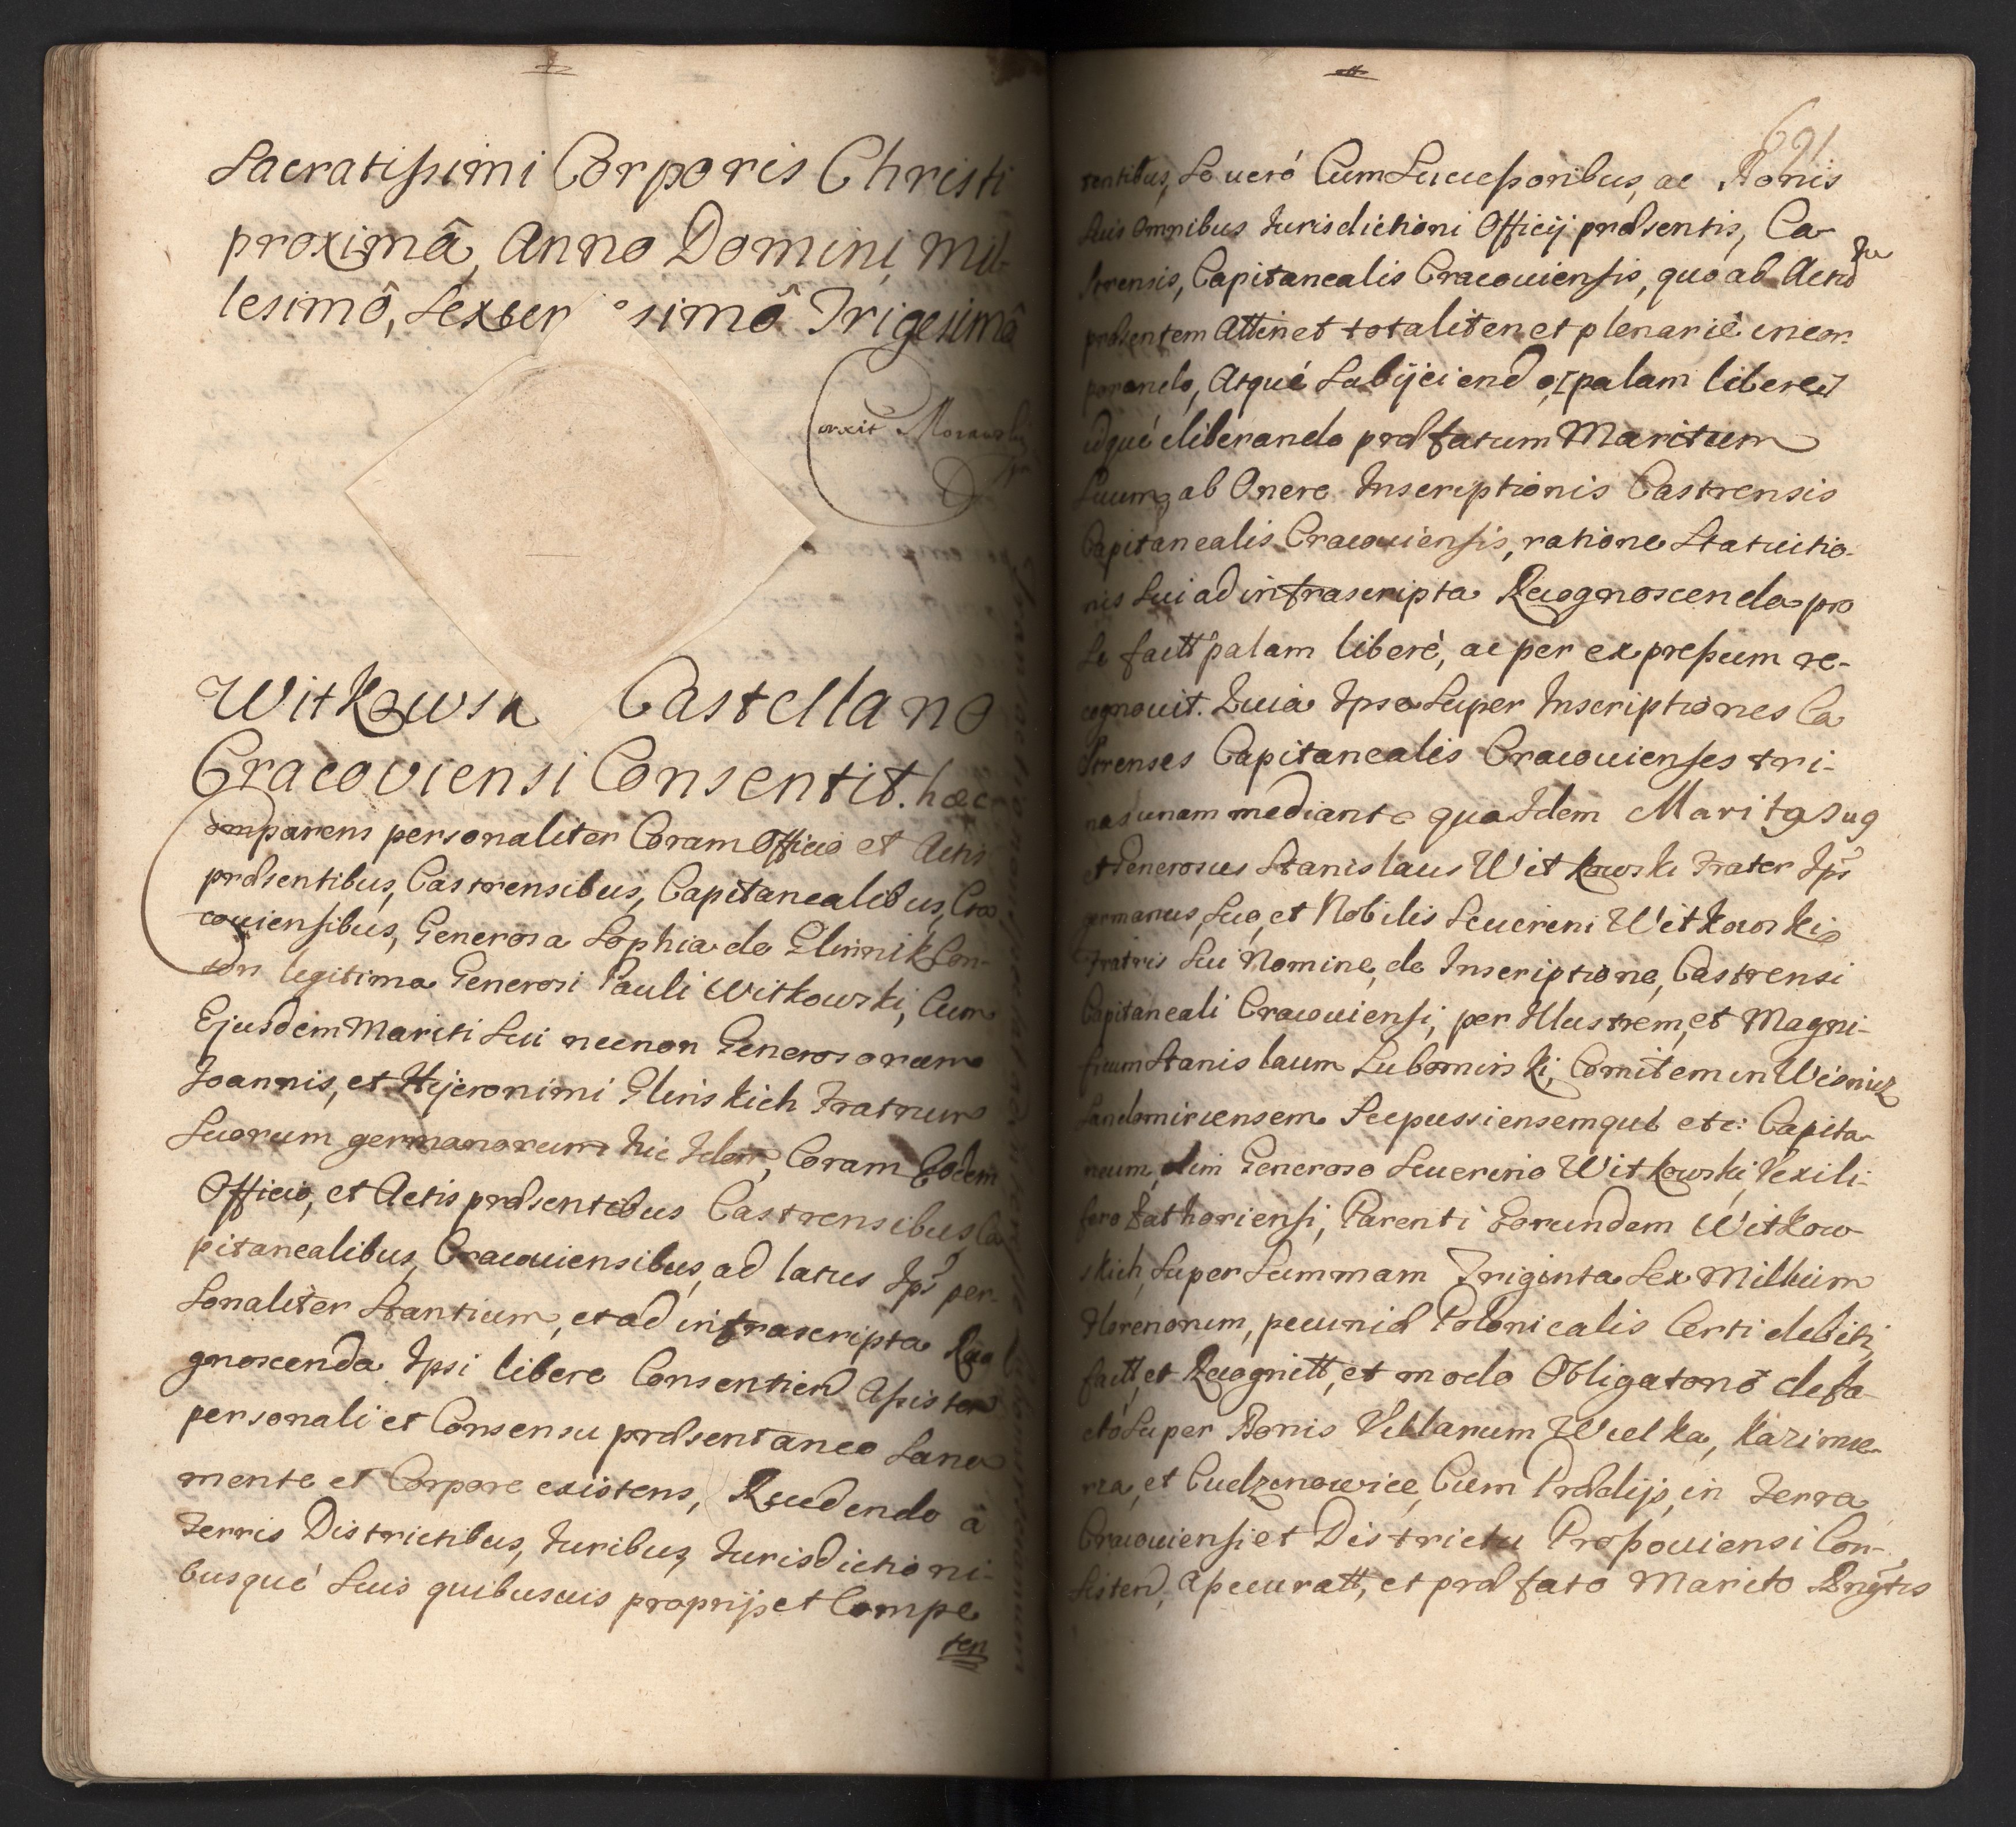 Sacratissimi Corporis Christi
proximâ, Anno Domini Mil-
lesimô, Sexcen simô Trigesimô
orxit
Witkowsk Castellano
Cracoviensi Consentit. haec
Comparens personaliter Coram Officio et Actis
praesentibus, Castrensibus, Capitanealibus, Cra
couiensibus, Generosa Sophia de Glinnik Con-
sors legitima Generosi Pauli Witkowski, Cum
Ejusdem Mariti Sui necnon Generosorum
Joannis, et Hijeronimi Glinskich Fratrum
Suorum germanorum hic Idem, Coram Eodem
Officio, et Actis praesentibus Castrensibus Ca
pitanealibus, Cracouiensibus, ad latus Ips per-
sonaliter Stantium, et ad infrascripta Reco
gnoscenda Ipsi libere Consentien Assisten
personali et Consensu praesentaneo Sana
mente et Corpore existens, Recedendo à
Terris Districtibus, Juribus, Jurisdictioni-
busque Suis quibusuis proprijs et Compe
ten
691
tentibus, Se uero Cum Successoribus, ac Bonis
Suis Omnibus Jurisdictioni Officij praesentis, Ca-
strensis, Capitanealis Cracouiensis, quo ad Actu
praesentem Attinet totaliter et plenarie incor-
porando, Atque Subijciend o, palam libere
idque eliberando praefatum Maritum
Suum, ab Onere Inscriptionis Castrensis
Capitanealis Cracouiensis, ratione Statuitio-
nis Sui ad infrascripta Recognoscenda pro
Se factt palam liberè, ac per expressum re-
cognouit. Quia Ipsa Super Inscriptiones Ca
strenses Capitanealis Cracouienses tri-
nas unam mediante qua Idem Maritg Sug
et Generosus Stanislaus Witkowski Frater Ips
germanus, Suo, et Nobilis Seuereni Witkowski
Fratris Sui Nomine, de Inscriptione, Castrensi
Capitaneali Cracouiensi, per Illustrem, et Magni-
ficum Stanislaum Lubomirski, Comitem in Wisnicz
Sandomiriensem Scepussiensemque etc: Capita-
neum, olim Generoso Seuerino Witkowski, Vexili-
fero Zathoriensi, Parenti Eorundem Witkow-
skich, Super Summam Triginta Sex Millium
Florenorum, pecuniae Polonicalis Certi debiti,
factt, et Recognitt, et modo Obligatorio de fa-
cto Super Bonis Villarum Wielka, Kazimie-
rza, et Cudzynowice, Cum Praedijs, in Terra
Cracouiensi et Districtu Proszouiensi Con-
sisten, assecuratt, et praefato Marito Recogntis